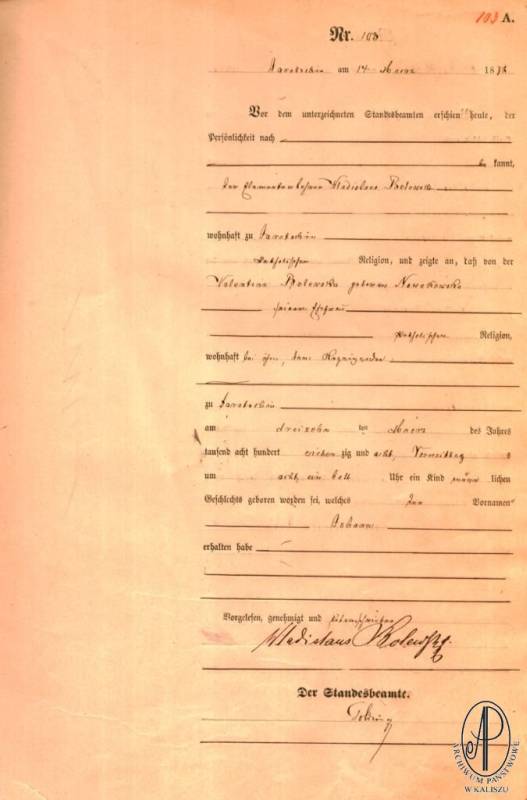 103 A.
Nr. 103
Jarotschin am 14 Maerz 1878
Vor dem unterzeichneten Standesbeamten erschien heute, der
Persönlichkeit nach
be kannt,
der Elementarlehrer Wladislaus
wohnhaft zu Jarotschin
katholischer Religion, und zeigte an, daß von der
Valentina geborene Nowakowska
seiner Ehefrau
katholischer Religion,
wohnhaft bei ihm,
zu Jarotschin
am dreizehn ten Maerz des Jahres
tausend acht hundert sieben zig und acht, Vormittag s
um acht ein halb Uhr ein Kind männ lichen
Geschlechts geboren worden sei, welches den Vornamen
Johann
erhalten habe
Vorgelesen, genehmigt und unterschrieben
Wladislaus
Der Standesbeamte.
ARCHIWUM PAŃSTWOWE
W KALISZU